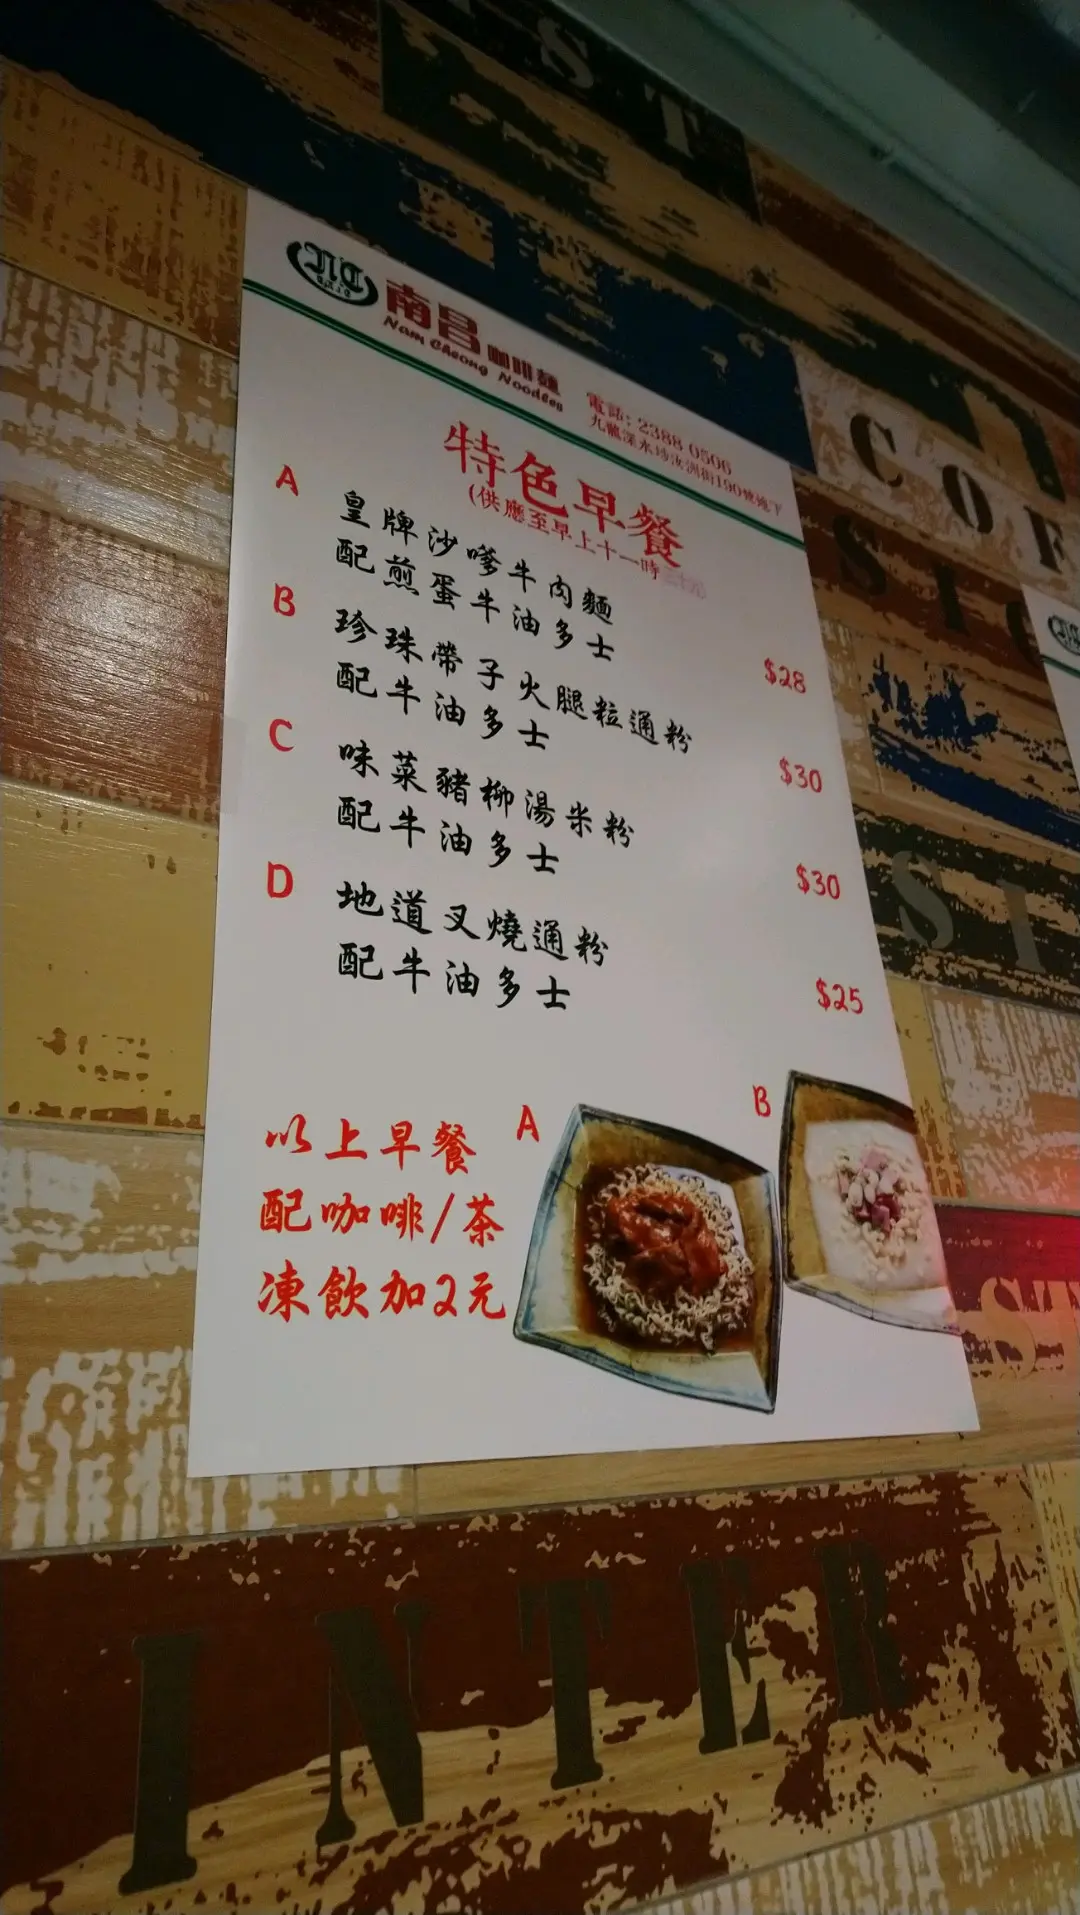 S T
NC
南昌 咖啡麵
Nam Cheong Noodles
電話: 2388 0506
九龍深水埗汝洲街190號地下
特色早餐
(供應至早上十一時
A 皇牌沙嗲牛肉麵
配煎蛋牛油多士 $28
B 珍珠帶子火腿粒通粉
配牛油多士 $30
C 味菜豬柳湯米粉
配牛油多士 $30
D 地道叉燒通粉
配牛油多士 $25
以上早餐
配咖啡/茶
凍飲加2元
A B
C O F
S I
S I
S
I N T E R